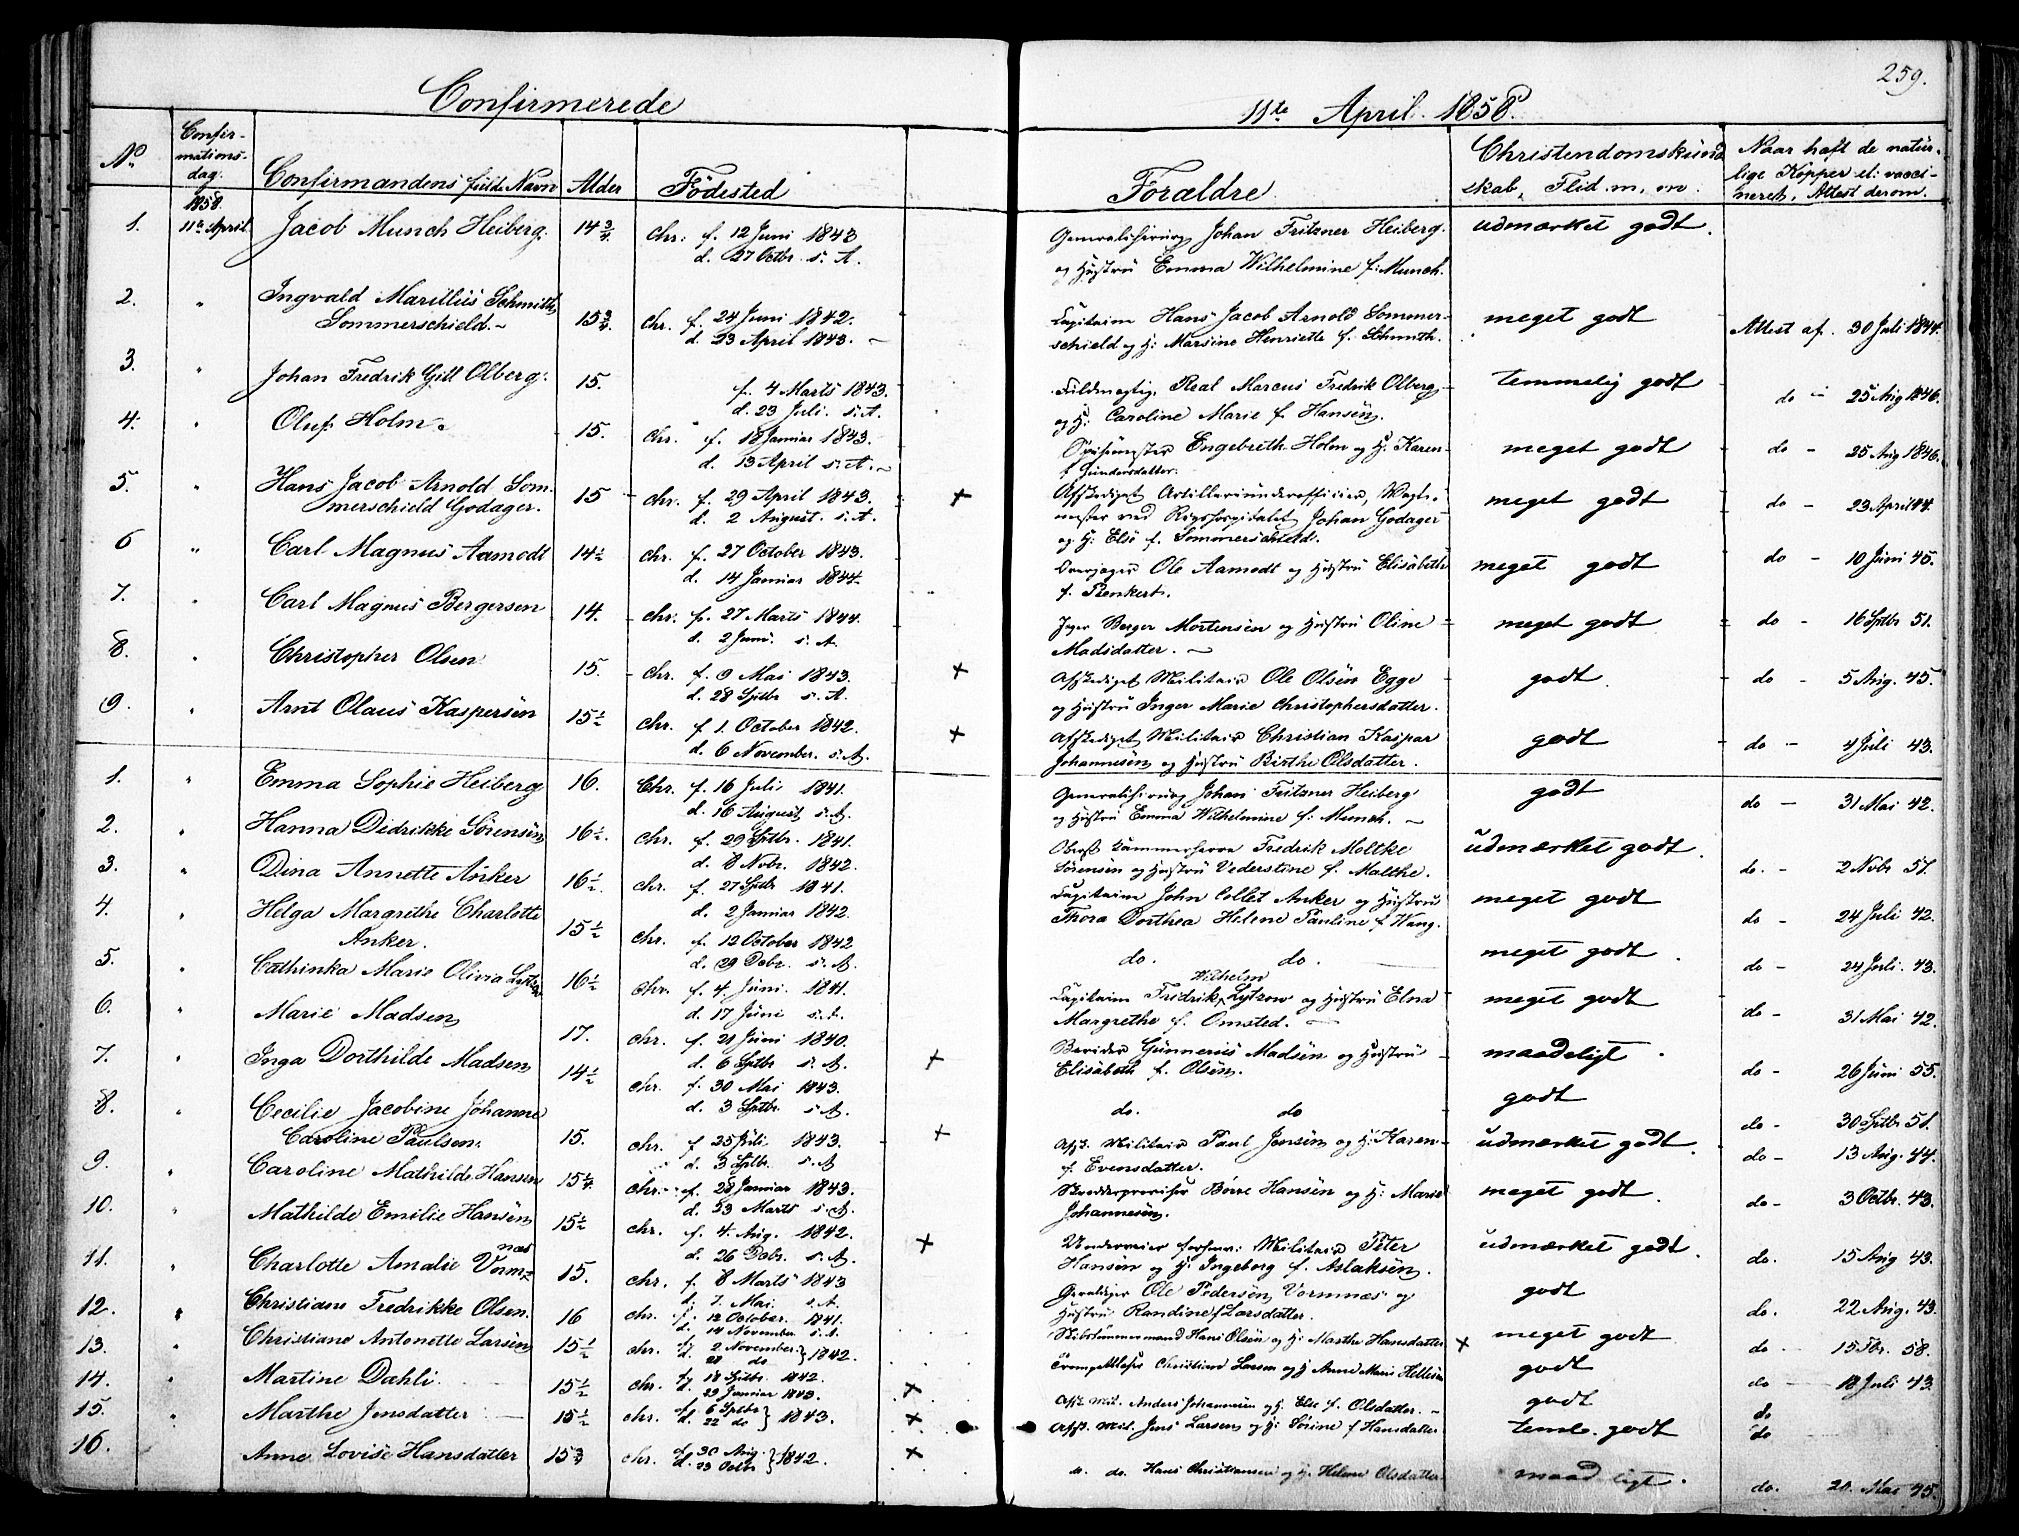 259.
Confirmerede 11te April 1858.
No Confir-mations-dag. Confirmandens fulde Navn Alder Födested Foraldre Christendomskund skab, Flid m, m. Naar haft de natur-lige Kopper el: vacci-neret, Attest derom.
1858
1. 11te April Jacob Munch Heiberg. 14 3/4 Chr. f. 12 Juni 1843 Johan Fritzner Heiberg. udmærket godt.
d. 27 Octbr. s. A. og Hustru Emma Wilhelmine f. Munch.
2. " Ingvald Marillius Schmith
Sommerschield. 15 3/4. Chr. f. 24 Juni 1842. Capitain Hans Jacob Arnold Sommer- meget godt Attest af. 30 Juli 1844.
d. 23 April 1843. schield og H: Marsine Henriette f. Schmith.
3. " Johan Fredrik Gill Olberg. 15. f. 4 Marts 1843. Fuldmegtig, Real Marcus Fredrik Olberg temmelig godt do - 25 Aug 1846.
d. 23 Juli. s. A. og H. Caroline Marie f. Hansen.
4. " Oluf Holm. 15. Chr. f. 18 Januar 1843. Engebreth Holm og H. Karen meget godt do - 25 Aug 1846.
d. 13 April s. A. f. Gundersdatter.
5. " Hans Jacob Arnold Som-
merschield Godager. 15 Chr. f. 29 April 1843. + Afskediget Artilleriunderofficier, Vagt- meget godt do - 23 April 44.
d. 2 August. s. A. mester ved Rigshospitalet Johan Godager
og H: Else f. Sommerschield.
6 " Carl Magnus Aamodt 14 1/2 Chr. f. 27 October 1843. Ole Aamodt og Hustru Elisabeth meget godt do - 10 Juni 45.
d. 14 Januar 1844. f. Renkert.
7. " Carl Magnus Bergersen 14. Chr. f. 27 Marts 1844. Jæger Berger Mortensen og Hustru Oline meget godt do - 16 Sptbr 51.
d. 2 Juni. s. A. Madsdatter.
8. " Christopher Olsen 15. Chr. f. 9 Mai 1843. + Afskediget Militair Ole Olsen Egge godt do - 5 Aug. 45.
d. 28 Sptbr s. A. og Hustru Inger Marie Christophersdatter.
9. " Arnt Olaus Kaspersen 15 1/2 Chr. f. 1. October 1842. + Afskediget Militair Christian Kaspar godt do - 4 Juli 43.
d. 6 November. s. A. Johannesen og Hustru Birthe Olsdatter.
1. " Emma Sophie Heiberg 16. Chr. f. 16 Juli 1841. Johan Fritzner Heiberg godt do - 31 Mai 42.
d. 16 August s. A. og Hustru Emma Wilhelmine f. Munch.
2. " Hanna Didrikke Sørensen 16 1/2. Chr. f. 29 Sptbr. 1841. Oberst Kammerherre Fredrik Moltke udmærket godt. do. - 2 Novbr 51.
d. 8 Novbr. 1842. Sørensen og Hustru Vederstine f. Malthe.
3. " Dina Annette Anker 16 1/2. Chr. f. 27 Sptbr 1841. Capitain John Collet Anker og Hustru meget godt do - 24 Juli 42.
d. 2 Januar 1842. Thora Dorthea Helene Pauline f. Wang.
4. " Helga Margrethe Charlotte
Anker. 15 1/2 Chr. f. 12 October 1842 do. do. meget godt do - 24 Juli. 43.
d. 29 Decbr. s. A.
5. " Cathinka Marie Olivia Lytzow 16 1/2 Chr. f. 4. Juni. 1841. Capitain Fredrik Wilhelm Lytzow og Hustru Elna meget godt do - 31 Mai 42.
d. 17 Juni s. A. Margrethe f. Omsted.
6. " Marie Madsen 17. Chr. f. 21 Juni 1840. Bereider Gunnerius Madsen og Hustru maadeligt do - 26 Juni 55.
d. 6 Sptbr s. A. Elisabeth f. Olsen.
7. " Inga Dorthilde Madsen 14 1/2 Chr. f. 30 Mai 1843. + do. do godt do - 30 Sptbr 51.
d. 3 Sptbr. s. A.
8. " Cecilie Jacobine Johanne
Caroline Paulsen. 15. Chr. f. 25 Juli 1843. + Afsk. Militair Paul Jensen og H: Karen udmærket godt. do - 13 Aug. 44.
d. 3 Sptbr. s. A f. Evensdatter.
9. " Caroline Mathilde Hansen 15 1/4. Chr. f. 28 Januar 1843. Børre Hansen og H: Marie meget godt. do - 3 Octbr. 43.
d. 23 Marts s. A. Johannesen.
10. " Mathilde Emilie Hansen 15 1/2 Chr. f. 4. Aug. 1842. + Militair Peter udmærket godt. do. 15 Aug 43.
d. 26 Decbr. s. A. Hansen og H. Ingeborg f. Aslaksen.
11. " Charlotte Amalie Vormnæs 15. Chr. f. 8 Marts 1843 Ole Pedersen Vormnæs og godt do. 22 Aug. 43.
d. 7. Mai. s. A. Hustru Randine f. Larsdatter.
12. " Christiane Fredrikke Olsen. 16 Chr. f. 12 October. 1841. Skibstømmermand Hans Olsen og H: Marthe Hansdatter + meget godt do. 15 Fbr. 58.
d. 14 November s. A.
13. " Christiane Antonette Larsen 15 1/2 Chr. f. 2 November d. 28 do } 1842. Christian Larsen og H Anne Marie Hellesen godt do 18 Juli 43.
14. " Martine Dahli 15 1/2 Chr. f. 18 Sptbr. 1842. d. 29 Januar 1843. + Afsk Mil. Anders Johannesen og H. Else f. Olsdatter. godt do
15. " Marthe Jensdatter 15 1/2 Chr. f. 6 Sptbr d. 22 do } 1843. + Afsk. Mil. Jens Larsen og H: Sørine f Hansdatter temlr. godt do
16. Anne Lovise Hansdatter 15 3/4 Chr. f. 30 Aug. d. 23 Octbr } 1842. + do. Hans Christiansen og H. Helene Olsdatter maadeligt. do. 20. Mai 45.